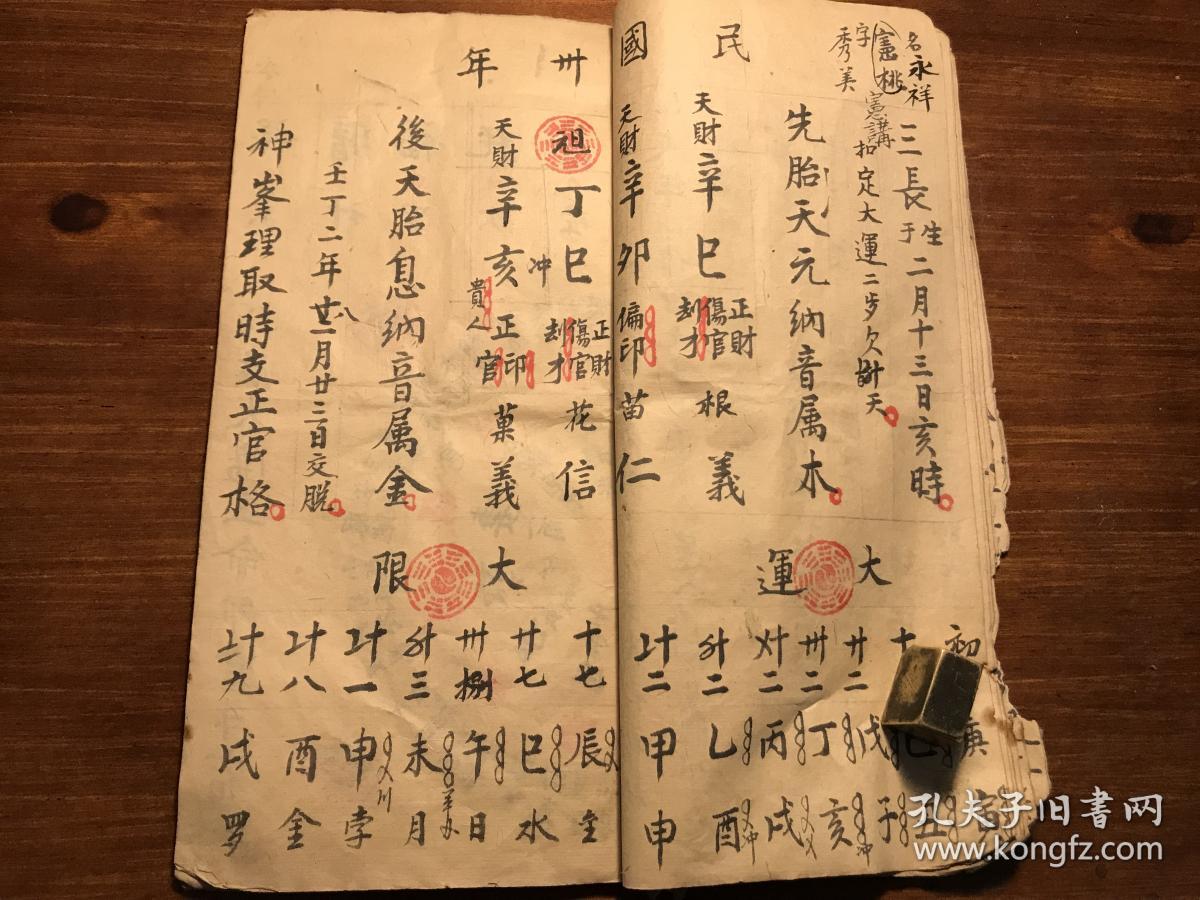 名永祥
憲桃
字秀美
三長生于二月十三日亥時
憲講扣定大運二岁欠天
先胎天元納音属木
民國卅年
天財辛巳正財傷官刦才根義
天財辛卯偏印苗仁
祖丁巳正財傷官刦才花信
冲
天財辛亥貴人正印官菓義
後天胎息納音属金
壬丁二年月廿三日交脱
神峯理取時支正官格
大運
初庚
十
廿二戊子
卅二丁亥
〤十二丙戌
〥十二乙酉
〦十二甲申
冲
冲
大限
十七辰金
廿七巳水
卅捌午日
〥十三未月
〦十一申孛
〦十八酉金
〦十九戌罗
孔夫子旧书网
www.kongfz.com